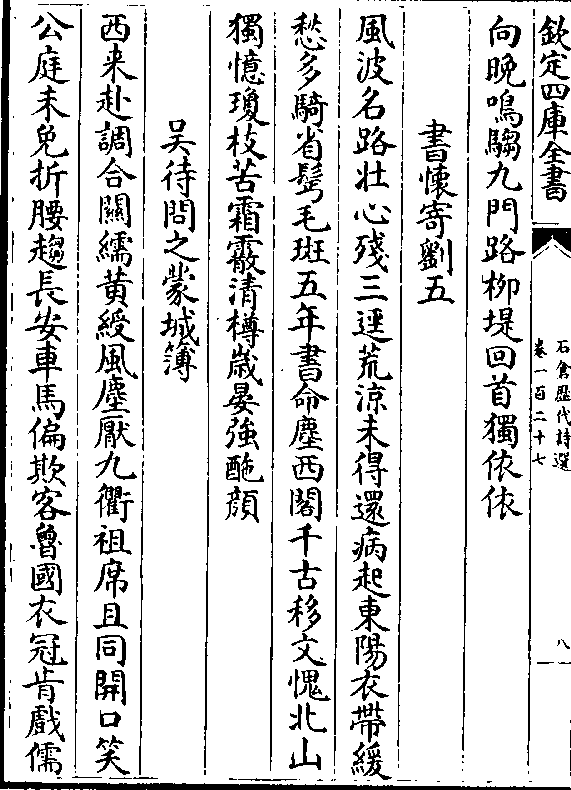 欽定四庫全書
石倉歷代詩選
卷一百二十七
八
向晚鳴騶九門路柳堤回首獨依依
書懷寄劉五
風波名路壯心殘三逕荒涼未得還病起東陽衣帶緩
愁多騎省鬂毛斑五年書命塵西閣千古移文愧北山
獨憶瓊枝苦霜霰清樽歳晏強酡顔
吴待問之蒙城簿
西来赴調合關繻黄綬風塵厭九衢祖席且同開口笑
公庭未免折腰趨長安車馬偏欺客魯國衣冠肯戲儒